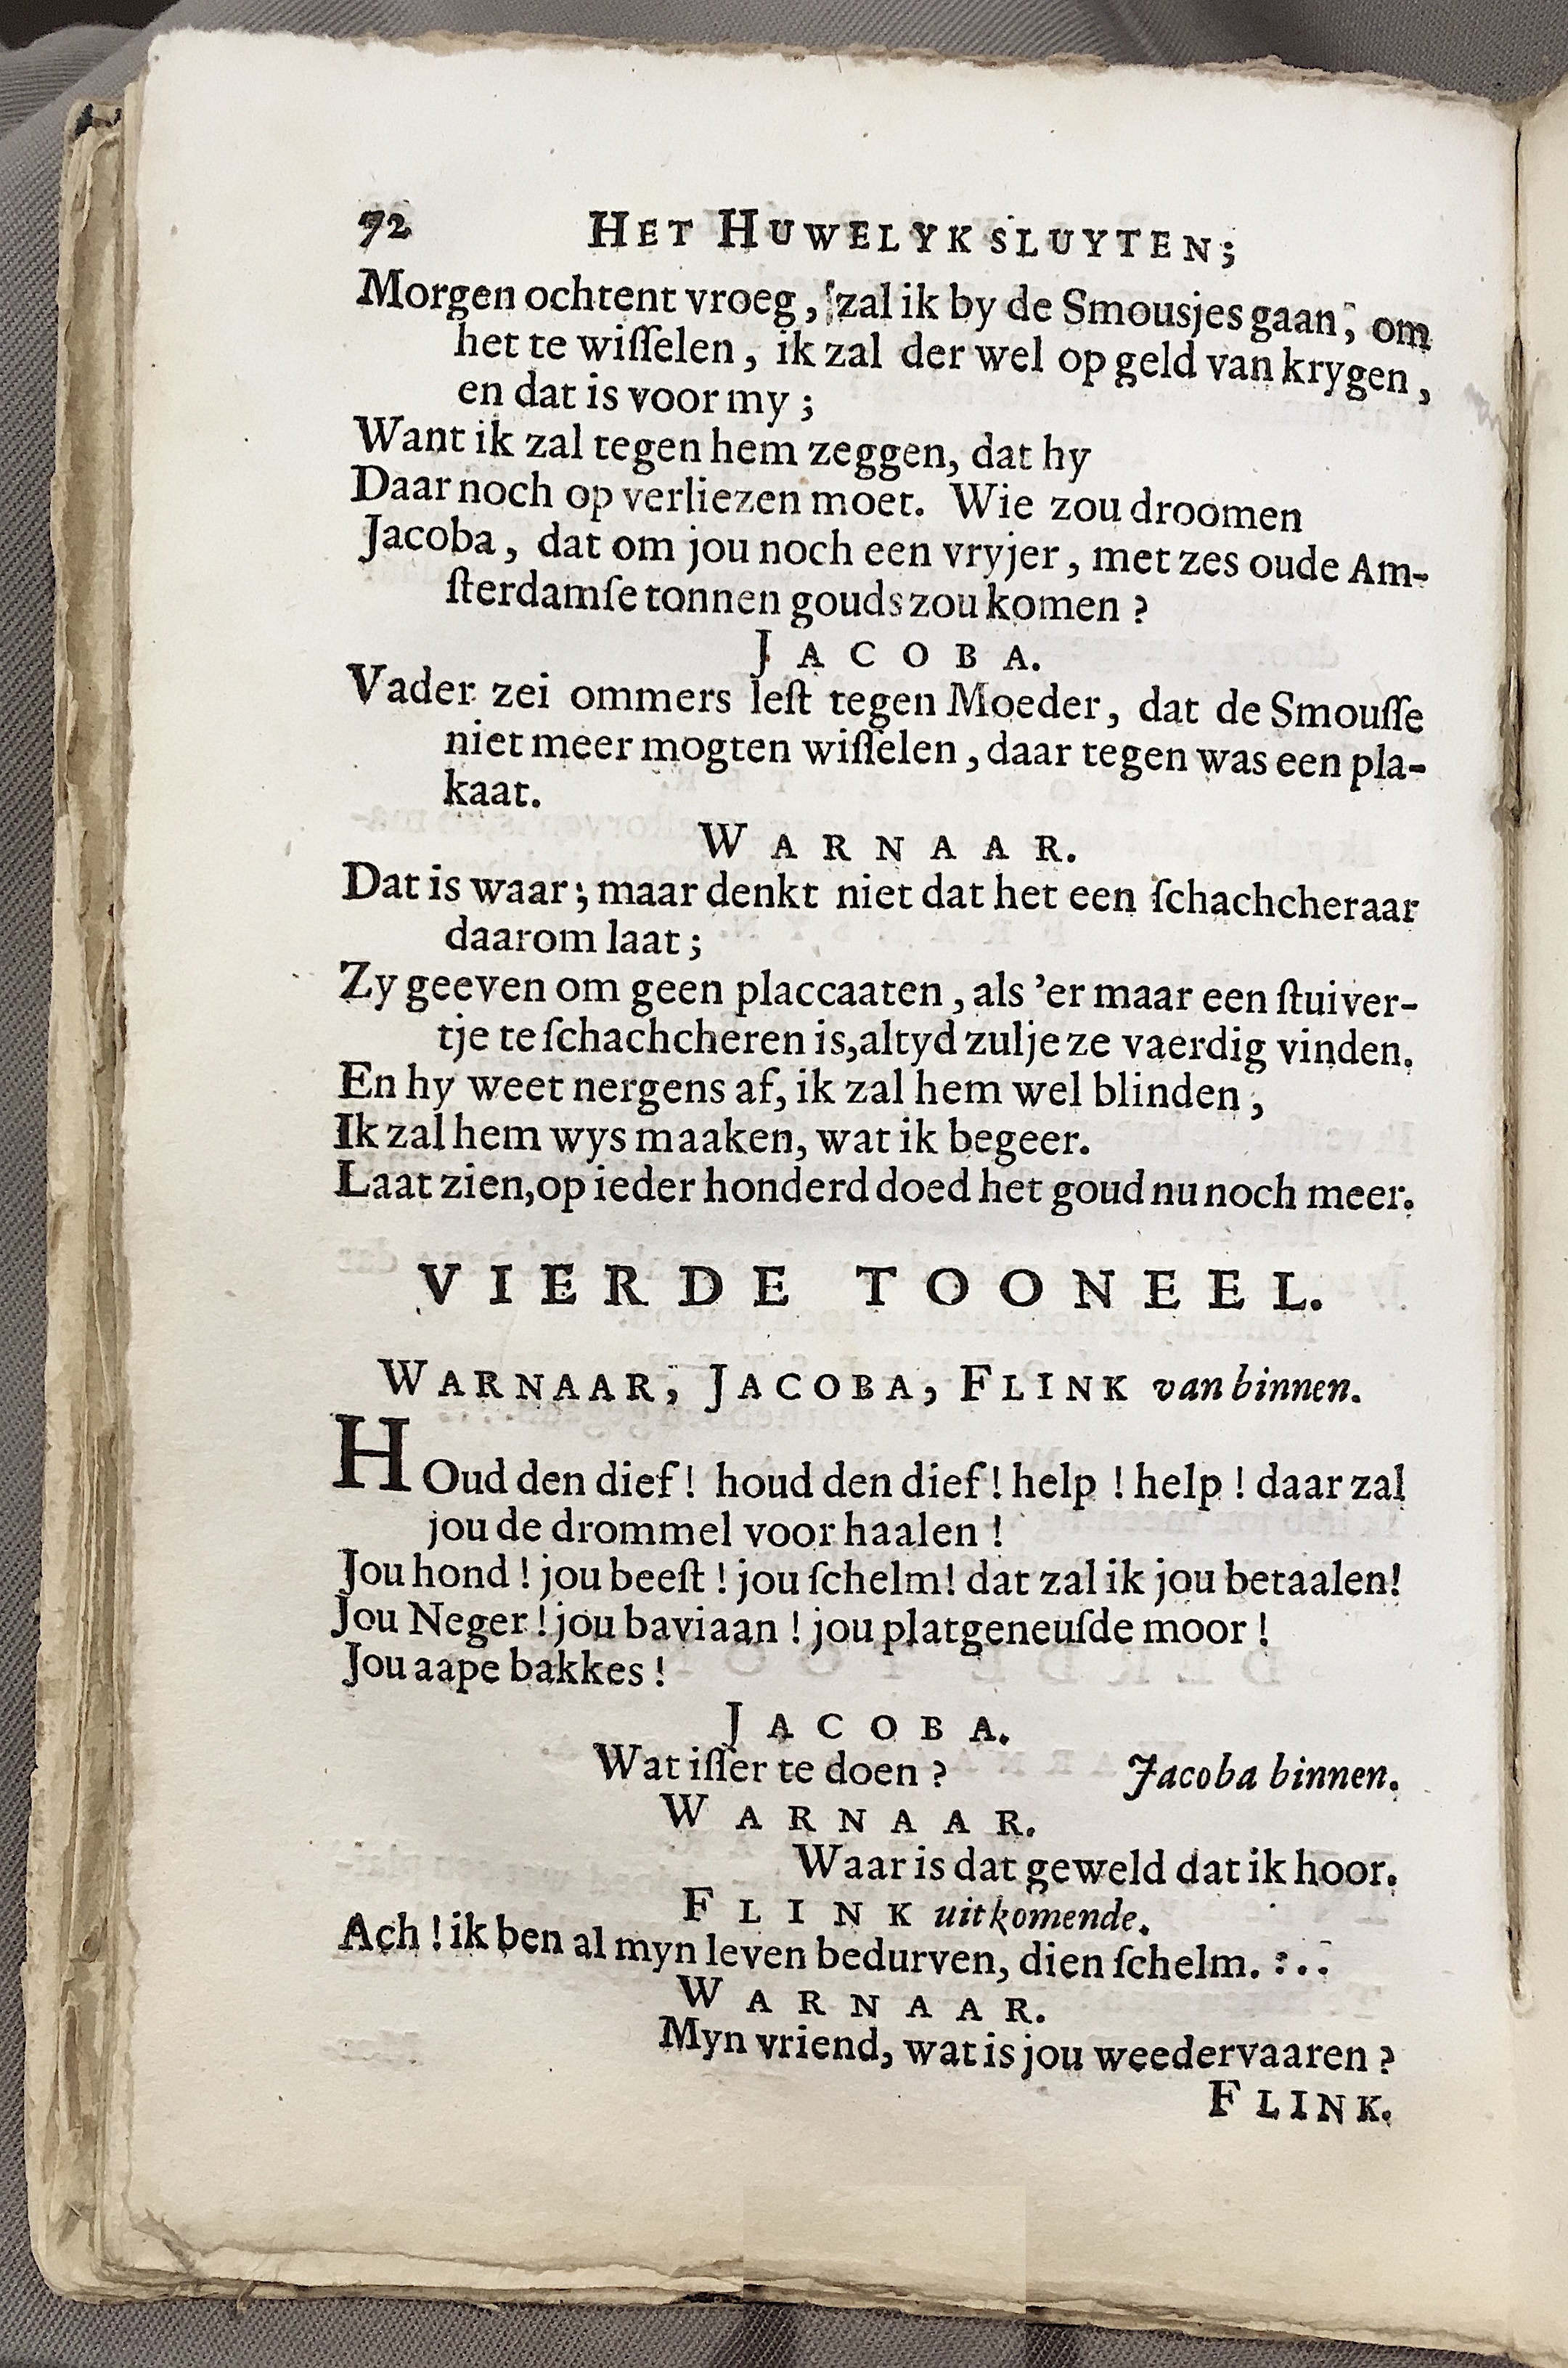 72 HET HUWELYK SLUYTEN;
Morgen ochtent vroeg, zal ik by de Smousjes gaan, om
het te wiſſelen, ik zal der wel op geld van krygen,
en dat is voor my;
Want ik zal tegen hem zeggen, dat hy
Daar noch op verliezen moet. Wie zou droomen
Jacoba, dat om jou noch een vryjer, met zes oude Am-
ſterdamſe tonnen gouds zou komen?
JACOBA.
Vader zei ommers leſt tegen Moeder, dat de Smouſſe
niet meer mogten wiſſelen, daar tegen was een pla-
kaat.
WARNAAR.
Dat is waar; maar denkt niet dat het een ſchachcheraar
daarom laat;
Zy geeven om geen placcaaten, als 'er maar een ſtuiver-
tje te ſchachcheren is, altyd zulje ze vaerdig vinden.
En hy weet nergens af, ik zal hem wel blinden,
Ik zal hem wys maaken, wat ik begeer.
Laat zien, op ieder honderd doed het goud nu noch meer.
VIERDE TOONEEL.
WARNAAR, JACOBA, FLINK van binnen.
HOud den dief! houd den dief! help! help! daar zal
jou de drommel voor haalen!
Jou hond! jou beeſt! jou ſchelm! dat zal ik jou betaalen!
Jou Neger! jou baviaan! jou platgeneuſde moor!
Jou aape bakkes!
JACOBA.
Wat iſſer te doen? Jacoba binnen.
WARNAAR.
Waar is dat geweld dat ik hoor.
FLINK uitkomende.
Ach! ik ben al myn leven bedurven, dien ſchelm. . . .
WARNAAR.
Myn vriend, wat is jou weedervaaren?
FLINK.